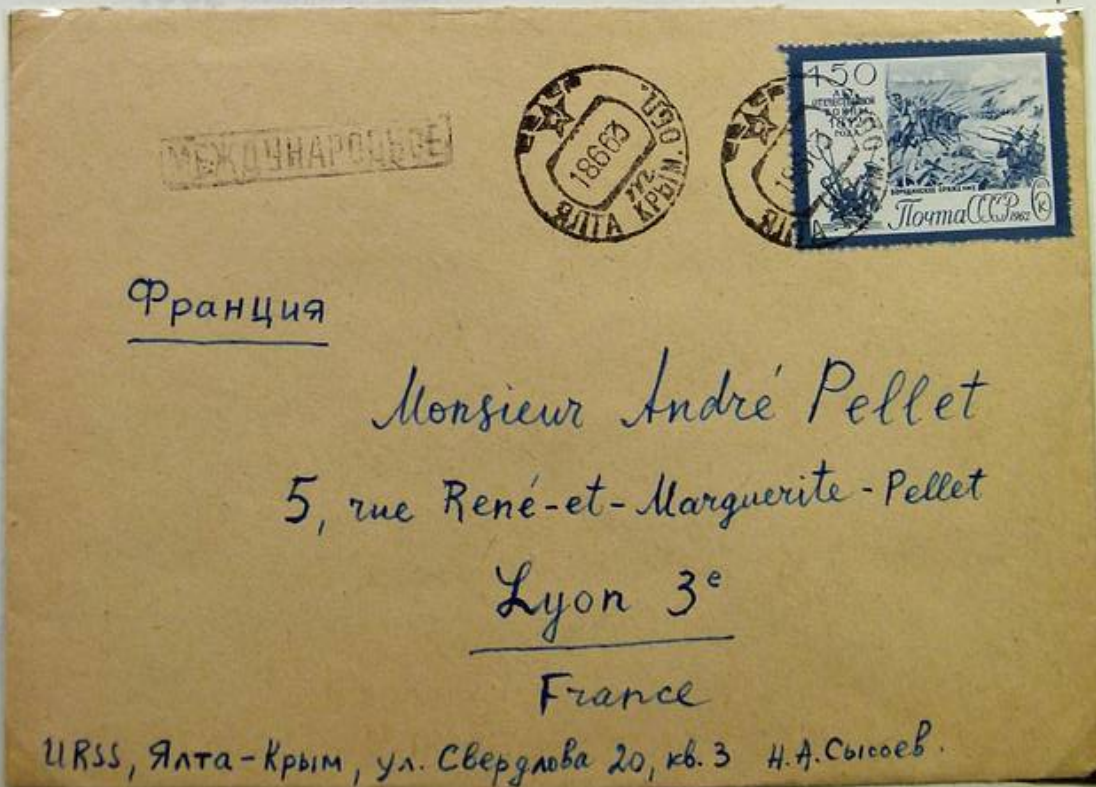 МЕЖДУНАРОДНОЕ
ЯЛТА КРЫМ. ОБЛ.
18663
ЯЛТА
150
ЛЕТ
ОТЕЧЕСТВЕННОЙ
ВОЙНЫ
1812
ГОДА
БОРОДИНСКОЕ СРАЖЕНИЕ
Почта СССР 1962
К
Франция
Monsieur André Pellet
5, rue René-et-Marguerite-Pellet
Lyon 3e
France
URSS, Ялта-Крым, ул. Свердлова 20, кв. 3 Н.А.Сысоев.